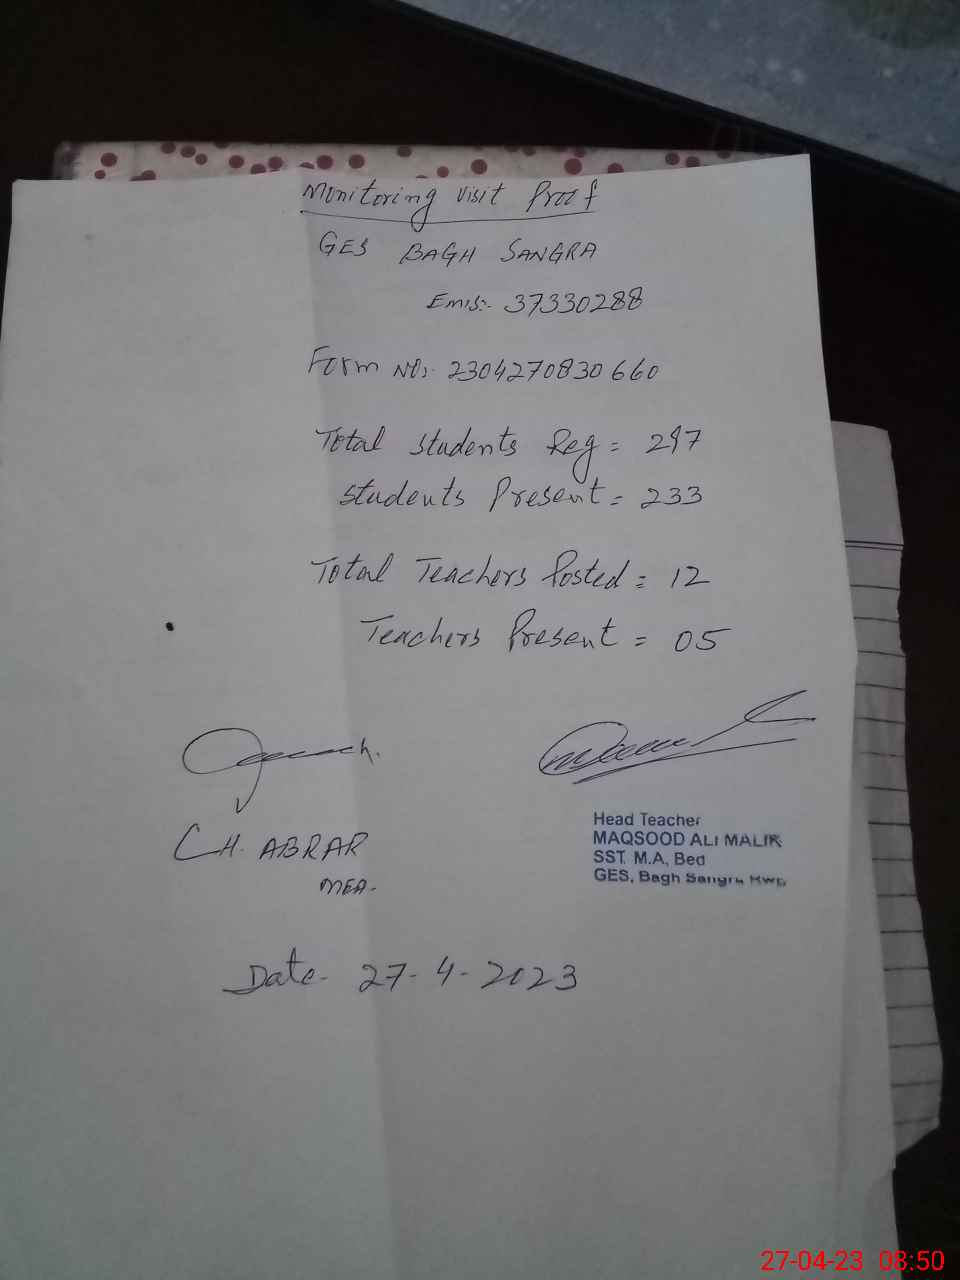 Monitoring Visit Proof
GES BAGH SANGRA
Emis:- 37330288
Form No:- 2304270830660
Total Students Reg = 297
Students Present = 233
Total Teachers Posted = 12
Teachers Present = 05
CH. ABRAR
MEA.
Head Teacher
MAQSOOD ALI MALIK
SST. M.A, Bed
GES, Bagh Sangra Rwp
Date- 27-4-2023
27-04-23 08:50